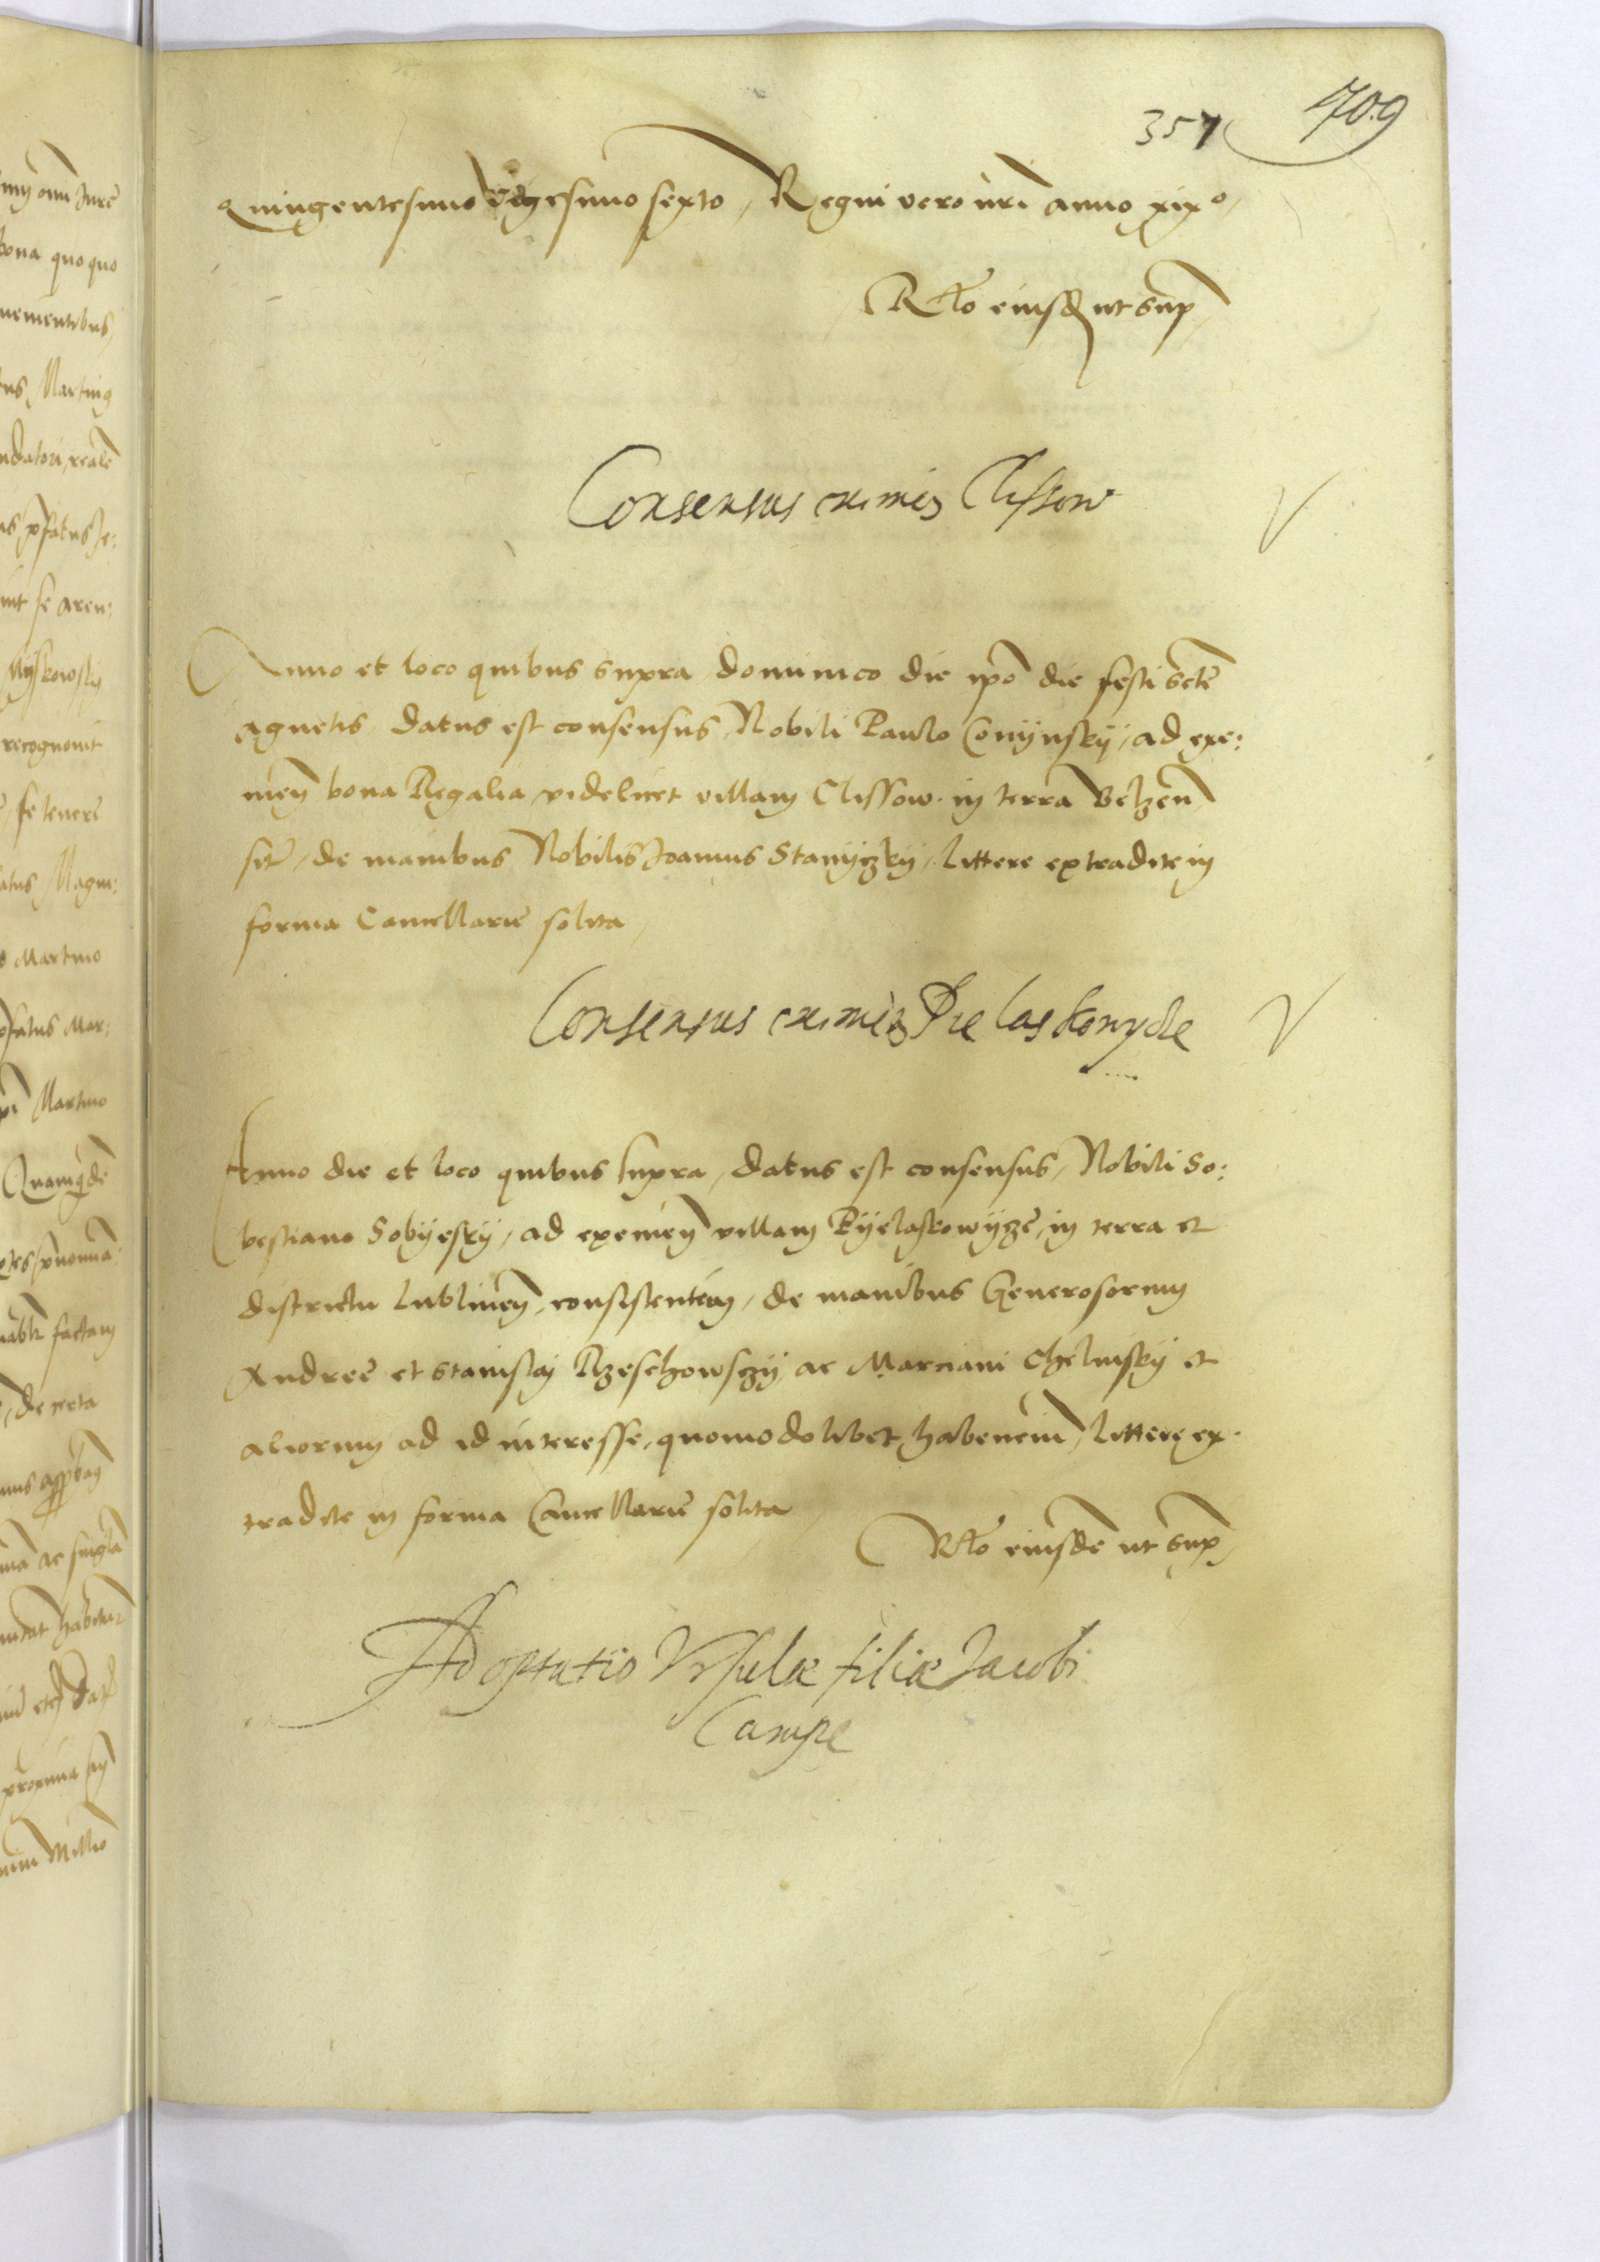 357 709
Quingentesimo vigesimo sexto, Regni vero nri anno xixo,
Rtio eiusd ut sup
Consensus eximen Clissow
Anno et loco quibus supra dominico die ipo die festi scte
Agnetis datus est consensus Nobili Paulo Conÿnskÿ, ad exi:
men bona Regalia videlicet villam Clissow in terra Belzen
sit, de manibus Nobilis Joannis Stanÿzkÿ, littere extradite in
forma Cancellarie solita,
Consensus eximen Pielaskowycze
Anno die et loco quibus supra, datus est consensus, Nobili Se:
bestiano Sobÿeskÿ, ad eximen villam Pÿelaskowÿze, in terra et
districtu Lublinen, consistentem, de manibus Generosorum
Andree et Stanislai Rzeschowsczÿ ac Marciani Chelmskÿ et
aliorum ad id interesse, quomodolibet habencium, littere ex:
tradite in forma Cancellarie solita
Rtio eiusde ut sup,
Adoptatio Vrsulæ filiæ Jacobi
Campe
mÿ omi Jure
bona quoquo
uementibus,
Marting
ndatori, reale
pfatus Je:
se aren:
recognouit
se tenere
atus Magni:
Martino
pfatus Mar:
Martino
factam
de certa
ac singla
habitur
proxima
Millio